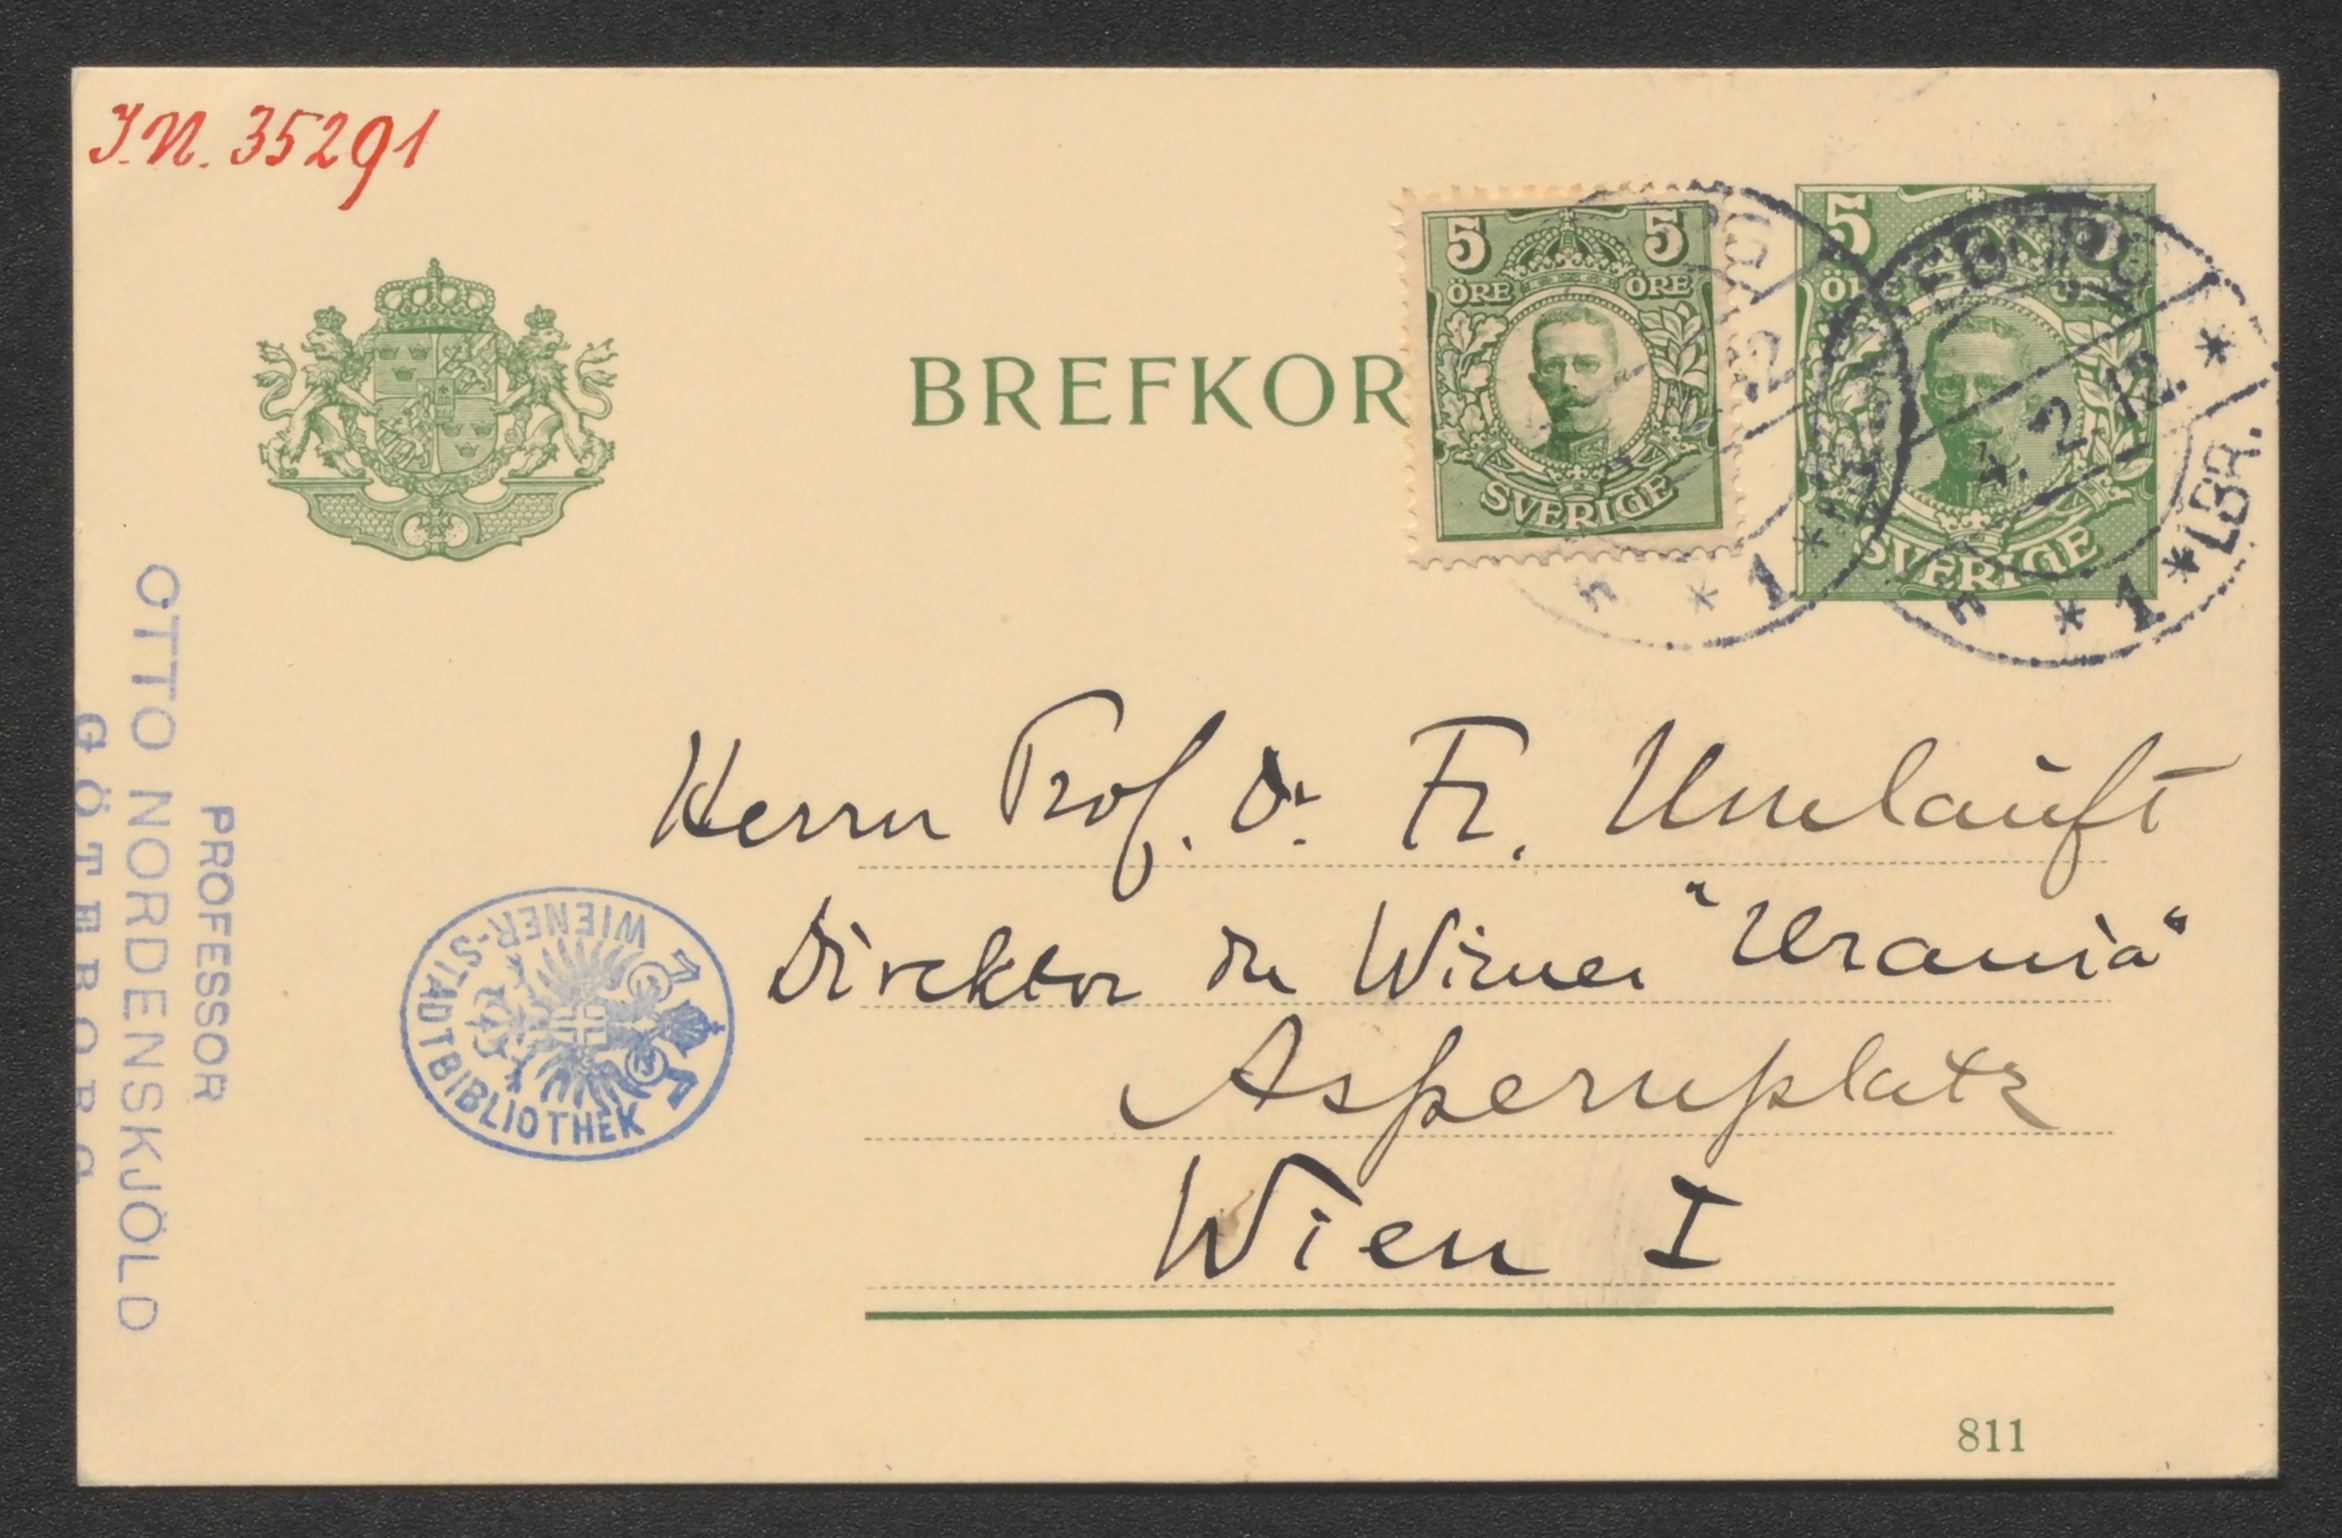 J.N. 35291
BREFKOR
5 5
ÖRE ÖRE
SVERIGE
5 5
ÖRE ÖRE
SVERIGE
4. 2. 12.
LBR.
* 1 *
* 1 *
PROFESSOR
OTTO NORDENSKJÖLD
GÖTEBORG
WIENER-STADTBIBLIOTHEK
Herrn Prof. Dr. Fr. Umlauft
Direktor der Wiener "Urania"
Aspernplatz
Wien I
811